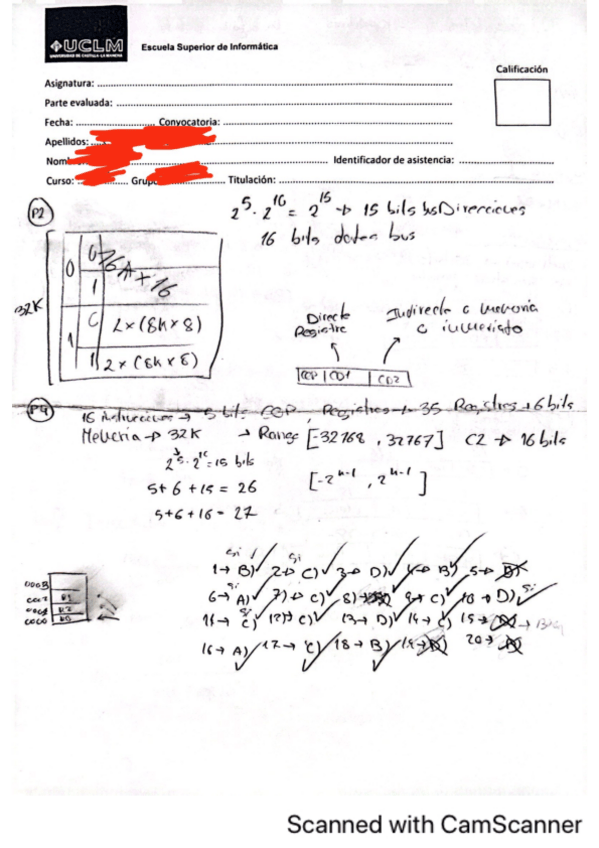 UCLM
UNIVERSIDAD DE CASTILLA-LA MANCHA
Escuela Superior de Informática
Calificación
Asignatura:
Parte evaluada:
Fecha: Convocatoria:
Apellidos:
Nom Identificador de asistencia:
Curso: Grup Titulación:
P2
2^5 · 2^10 = 2^15 → 15 bits bus Direcciones
16 bits datos bus
32K
0
0
1
16K × 16
1
0 2 × (8K × 8)
1 2 × (8K × 8)
Directo Registro
Indirecto a memoria o inmediato
COP | CD1 | CD2
P4
16 instrucciones → 5 bits COP, Registros → 35 Registros → 6 bits
Memoria → 32K → Rango [-32768, 32767] C2 → 16 bits
2^5 · 2^10 = 15 bits
[-2^n-1, 2^n-1]
5 + 6 + 15 = 26
5 + 6 + 16 = 27
si si
1 → B) 2 → C) 3 → D) 4 → B) 5 →
6 → A) 7) → C) 8) → 9 → C) 10 → D) si
11 → C) 12) → C) 13 → D) 14 → C) 15 →
16 → A) 17 → C) 18 → B) 19 → 20 →
Scanned with CamScanner